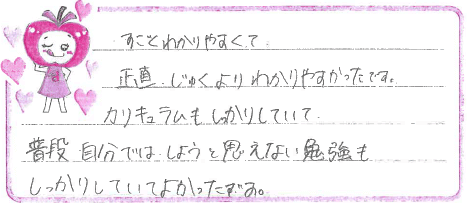 すごとわかりやすくて
正直、じゅくよりわかりやすかったです。
カリキュラムもしっかりしていて
普段自分ではしようと思えない勉強も
しっかりしていてよかったです。